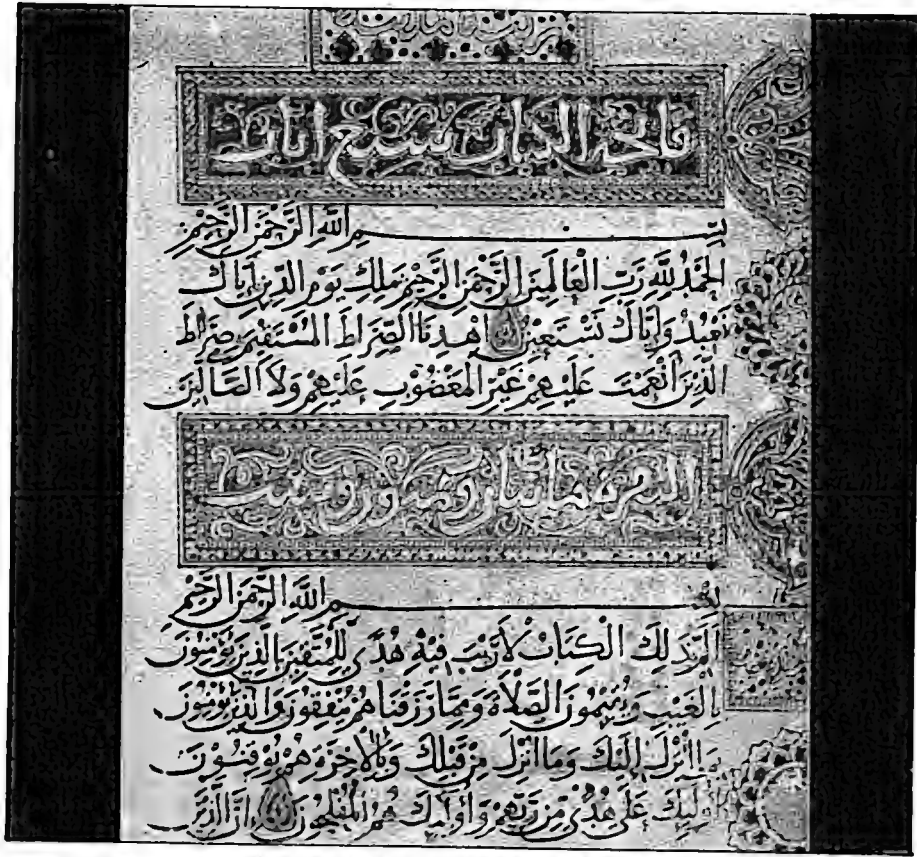 فاتحة الكتاب سبع ايات
بسم الله الرحمن الرحيم
الحمد لله رب العالمين الرحمن الرحيم ملك يوم الدين اياك
نعبد واياك نستعين اهدنا الصراط المستقيم صراط
الذين انعمت عليهم غير المغضوب عليهم ولا الضالين
البقرة مائتان وثمنون وست
بسم الله الرحمن الرحيم
الم ذلك الكتاب لا ريب فيه هدى للمتقين الذين يؤمنون
بالغيب ويقيمون الصلاة ومما رزقناهم ينفقون والذين يؤمنون
بما انزل اليك وما انزل من قبلك وبالاخرة هم يوقنون
اوليك على هدى من ربهم واوليك هم المفلحون ان الذين